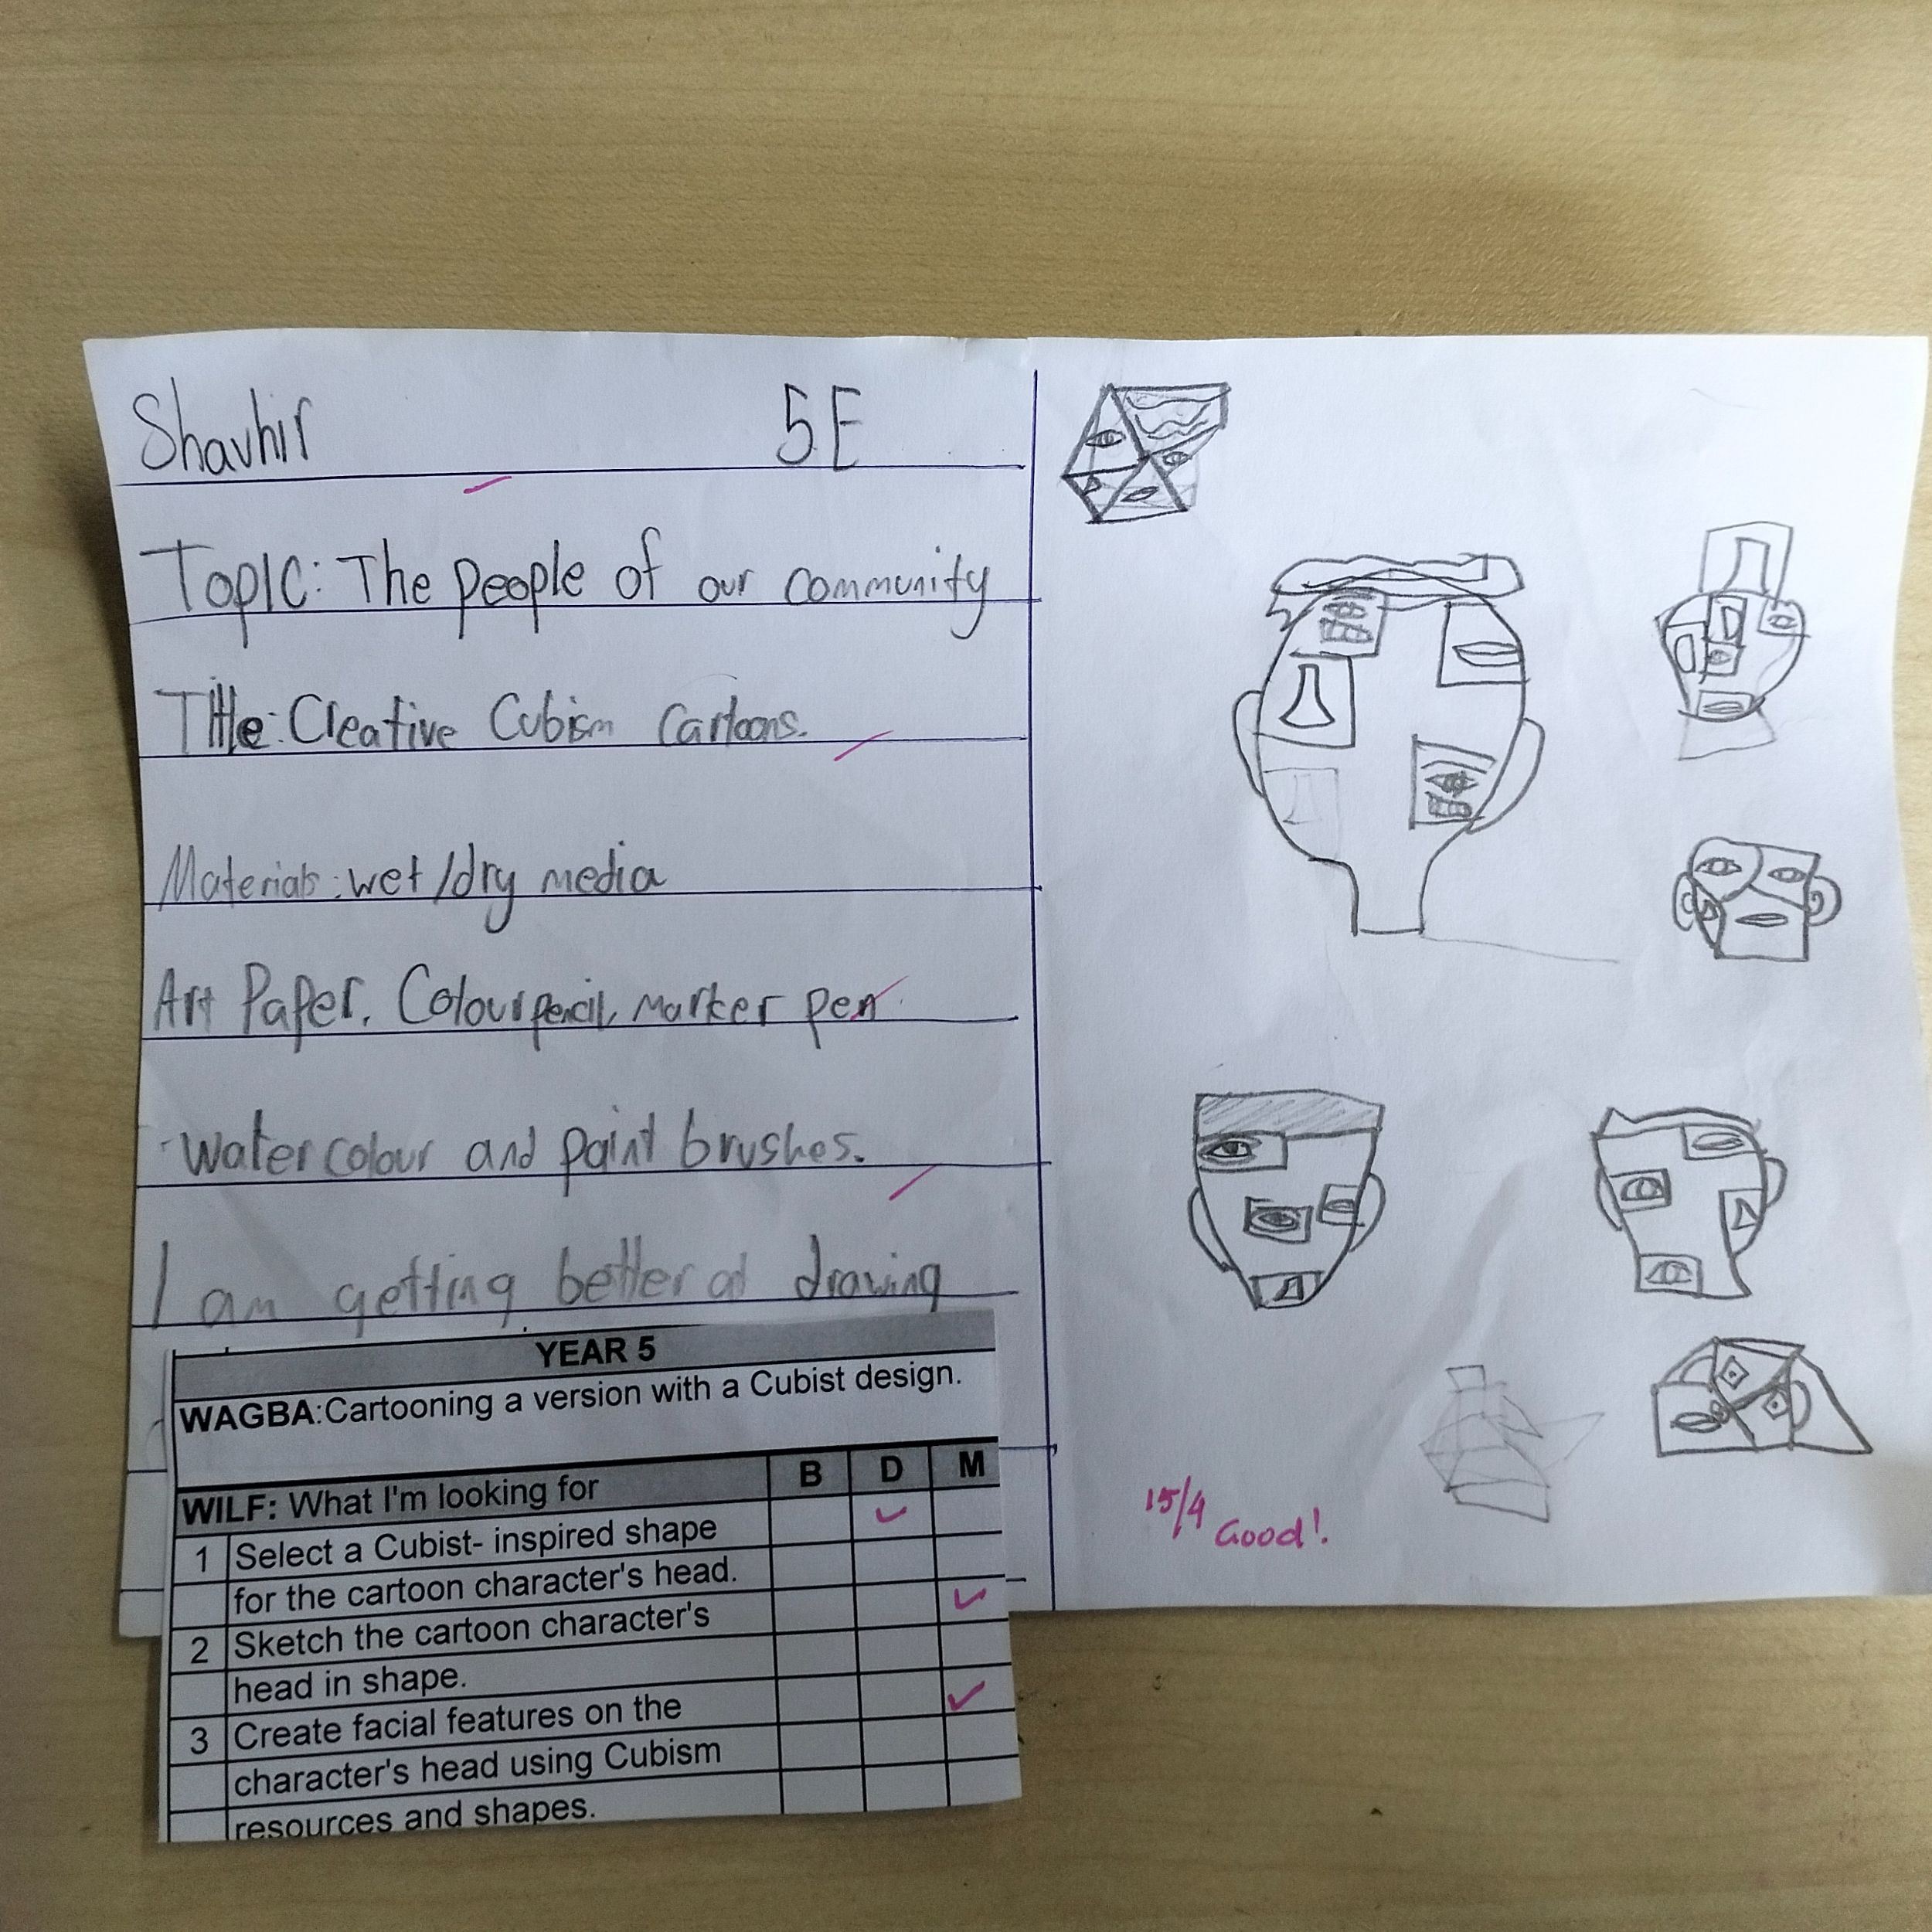 Shavhir 5E
Topic: The people of our community
Title: Creative Cubism Cartoons.
Materials: wet/dry media
Art Paper. Colour pencil, Marker pen
water colour and paint brushes.
I am getting better at drawing
YEAR 5
WAGBA:Cartooning a version with a Cubist design.
WILF: What I'm looking for B D M
1 Select a Cubist- inspired shape
for the cartoon character's head.
2 Sketch the cartoon character's
head in shape.
3 Create facial features on the
character's head using Cubism
resources and shapes.
15/4 Good!